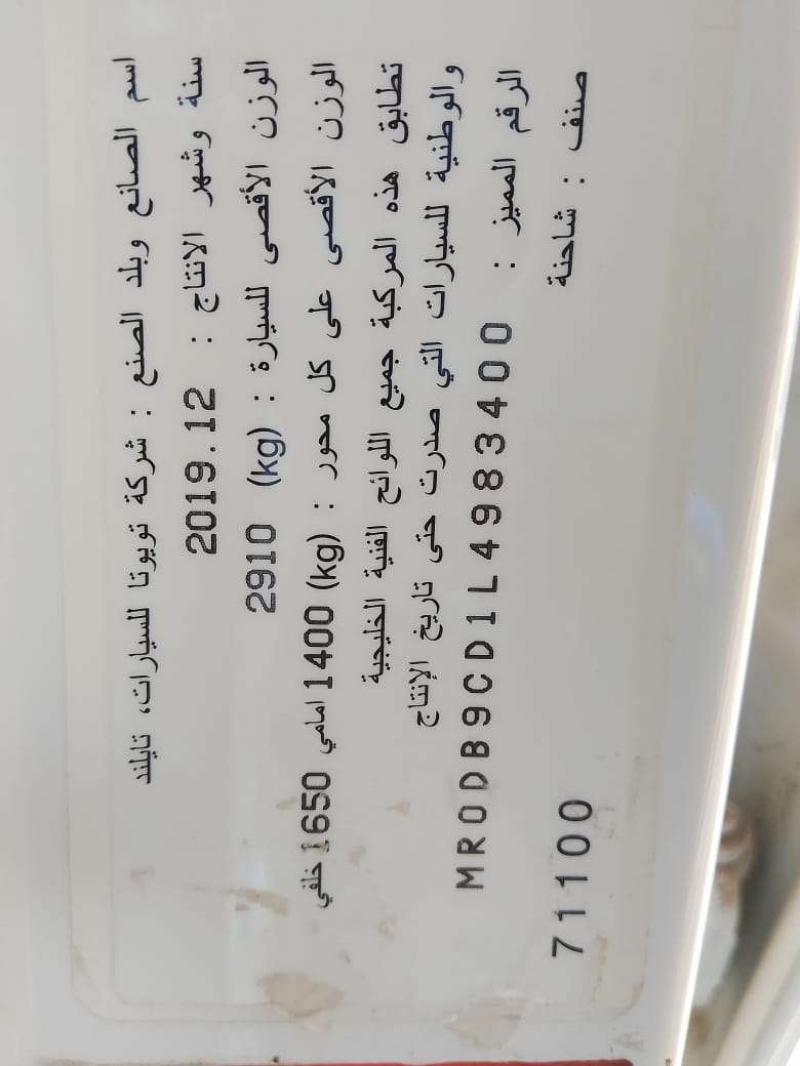 اسم الصانع وبلد الصنع : شركة تويوتا للسيارات، تايلند
سنة وشهر الانتاج : 2019.12
الوزن الأقصى للسيارة : 2910 (kg)
الوزن الأقصى على كل محور : 1400 (kg) امامي 1650 خلفي
تطابق هذه المركبة جميع اللوائح الفنية الخليجية
والوطنية للسيارات التي صدرت حتى تاريخ الإنتاج
الرقم المميز : MR0DB9CD1L4983400
صنف : شاحنة 71100